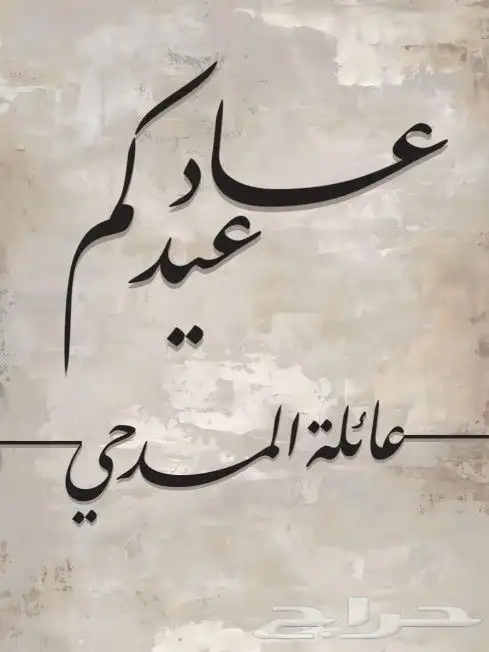 عاد
عيدكم
عائلة المدحي
حراج